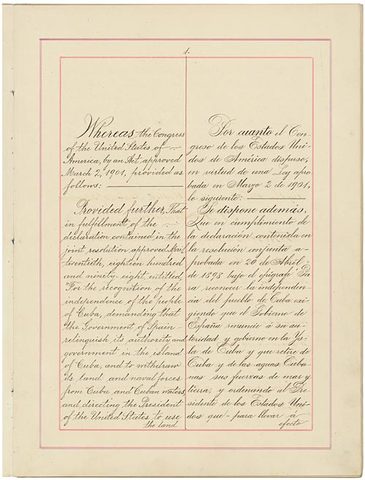 1.
Whereas the Congress
of the United States of
America, by an Act approved
March 2, 1901, provided as
follows:
Provided further, That
in fulfillment of the
declaration contained in the
joint resolution approved
twentieth, eighteen hundred
and ninety-eight, entitled
For the recognition of the
independence of the people
of Cuba, demanding that
the Government of Spain
relinquish its authority and
government in the island
of Cuba, and to withdraw
its land and naval forces
from Cuba and Cuban waters
and directing the President
of the United States to use
the land
Por cuanto el Con-
greso de los Estados Uni-
dos de América dispuso,
en virtud de una Ley apro-
bada en Marzo 2 de 1901,
lo siguiente:
Se dispone además,
Que en cumplimiento de
la declaración contenida en
la resolución conjunta a-
probada en 20 de Abril
de 1898 bajo el epígrafe Pa-
ra reconocer la independen-
cia del pueblo de Cuba exi-
giendo que el Gobierno de
España renuncie á su au-
toridad y gobierno en la Ys-
la de Cuba y que retire de
Cuba y de las aguas Cuba-
nas sus fuerzas de mar y
tierra y ordenando al Pre-
sidente de los Estados Uni-
dos que para llevar á
efecto